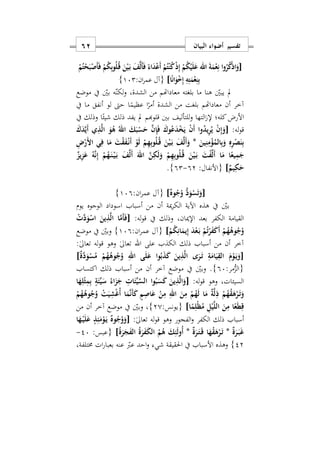 تفسير أضواء البيان
٦٢
[وَاذْكُرُوا نِعْمَةَ اللهِ عَلَيْكُمْ إِذْ كُنْتُمْ أَعْدَاءً فَأَلَّفَ بَيْنَ قُلُوبِكُمْ فَأَصْبَحْتُمْ
بِنِعْمَتِهِ إِخْوَانًا] {آل عمران: ١٠٣}
لم يبيّن هنا ما بلغته معاداتهم من الشدة، ولكنّه بيّن في موضع
آخر أن معاداتهم بلغت من الشدة أمرًا عظيمًا حتى لو أنفق ما في
الأرض كله؛ لإزالتها وللتأليف بين قلوبهم لم يفد ذلك شيئًا وذلك في
قوله: [وَإِنْ يُرِيدُوا أَنْ يَخْدَعُوكَ فَإِنَّ حَسْبَكَ اللهُ هُوَ الَّذِي أَيَّدَكَ
بِنَصْرِهِ وَبِالمُؤْمِنِينَ * وَأَلَّفَ بَيْنَ قُلُوبِهِمْ لَوْ أَنْفَقْتَ مَا فِي الأَرْضِ
جَمِيعًا مَا أَلَّفْتَ بَيْنَ قُلُوبِهِمْ وَلَكِنَّ اللهَ أَلَّفَ بَيْنَهُمْ إِنَّهُ عَزِيزٌ
حَكِيمٌ] {الأنفال: ٦٢-٦٣}.
[وَتَسْوَدُّ وُجُوهٌ] {آل عمران: ١٠٦}
بيّن في هذه الآية الكريمة أن من أسباب اسوداد الوجوه يوم
القيامة الكفر بعد الإيمان، وذلك في قوله: [فَأَمَّا الَّذِينَ اسْوَدَّتْ
وُجُوهُهُمْ أَكَفَرْتُمْ بَعْدَ إِيمَانِكُمْ] {آل عمران: ١٠٦} وبيّن في موضع
آخر أن من أسباب ذلك الكذب على الله تعالى وهو قوله تعالى:
[وَيَوْمَ القِيَامَةِ تَرَى الَّذِينَ كَذَبُوا عَلَى اللهِ وُجُوهُهُمْ مُسْوَدَّةٌ]
{الزُّمر: ٦٠}. وبيّن في موضع آخر أن من أسباب ذلك اكتساب
السيئات، وهو قوله: [وَالَّذِينَ كَسَبُوا السَّيِّئَاتِ جَزَاءُ سَيِّئَةٍ بِمِثْلِهَا
وَتَرْهَقُهُمْ ذِلَّةٌ مَا لَهُمْ مِنَ اللهِ مِنْ عَاصِمٍ كَأَنَّمَا أُغْشِيَتْ وُجُوهُهُمْ
قِطَعًا مِنَ اللَّيْلِ مُظْلِمًا] {يونس: ٢٧}، وبيّن في موضع آخر أن من
أسباب ذلك الكفر والفجور وهو قوله تعالى: [وَوُجُوهٌ يَوْمَئِذٍ عَلَيْهَا
غَبَرَةٌ * تَرْهَقُهَا قَتَرَةٌ * أُولَئِكَ هُمُ الكَفَرَةُ الفَجَرَةُ] {عبس: ٤٠-
٤٢} وهذه الأسباب في الحقيقة شيء واحد عبّر عنه بعبارات مختلفة،